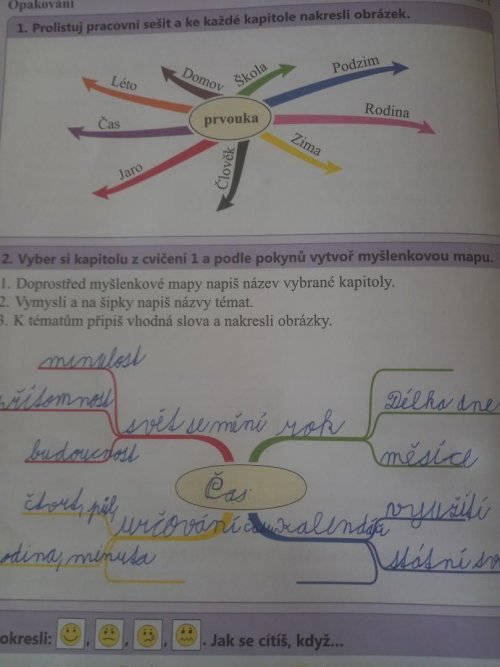 Opakování
1. Prolistuj pracovní sešit a ke každé kapitole nakresli obrázek.
Domov
Škola
Podzim
Léto
prvouka
Rodina
Čas
Zima
Jaro
Člověk
2. Vyber si kapitolu z cvičení 1 a podle pokynů vytvoř myšlenkovou mapu.
1. Doprostřed myšlenkové mapy napiš název vybrané kapitoly.
2. Vymysli a na šipky napiš názvy témat.
3. K tématům připiš vhodná slova a nakresli obrázky.
minulost
přítomnost
Délka dne
svět se mění
rok
budoucnost
měsíce
Čas
čtvrt, půl
určování času
kalendář
využití
odina, minuta
státní sv
okresli: , , , . Jak se cítíš, když...